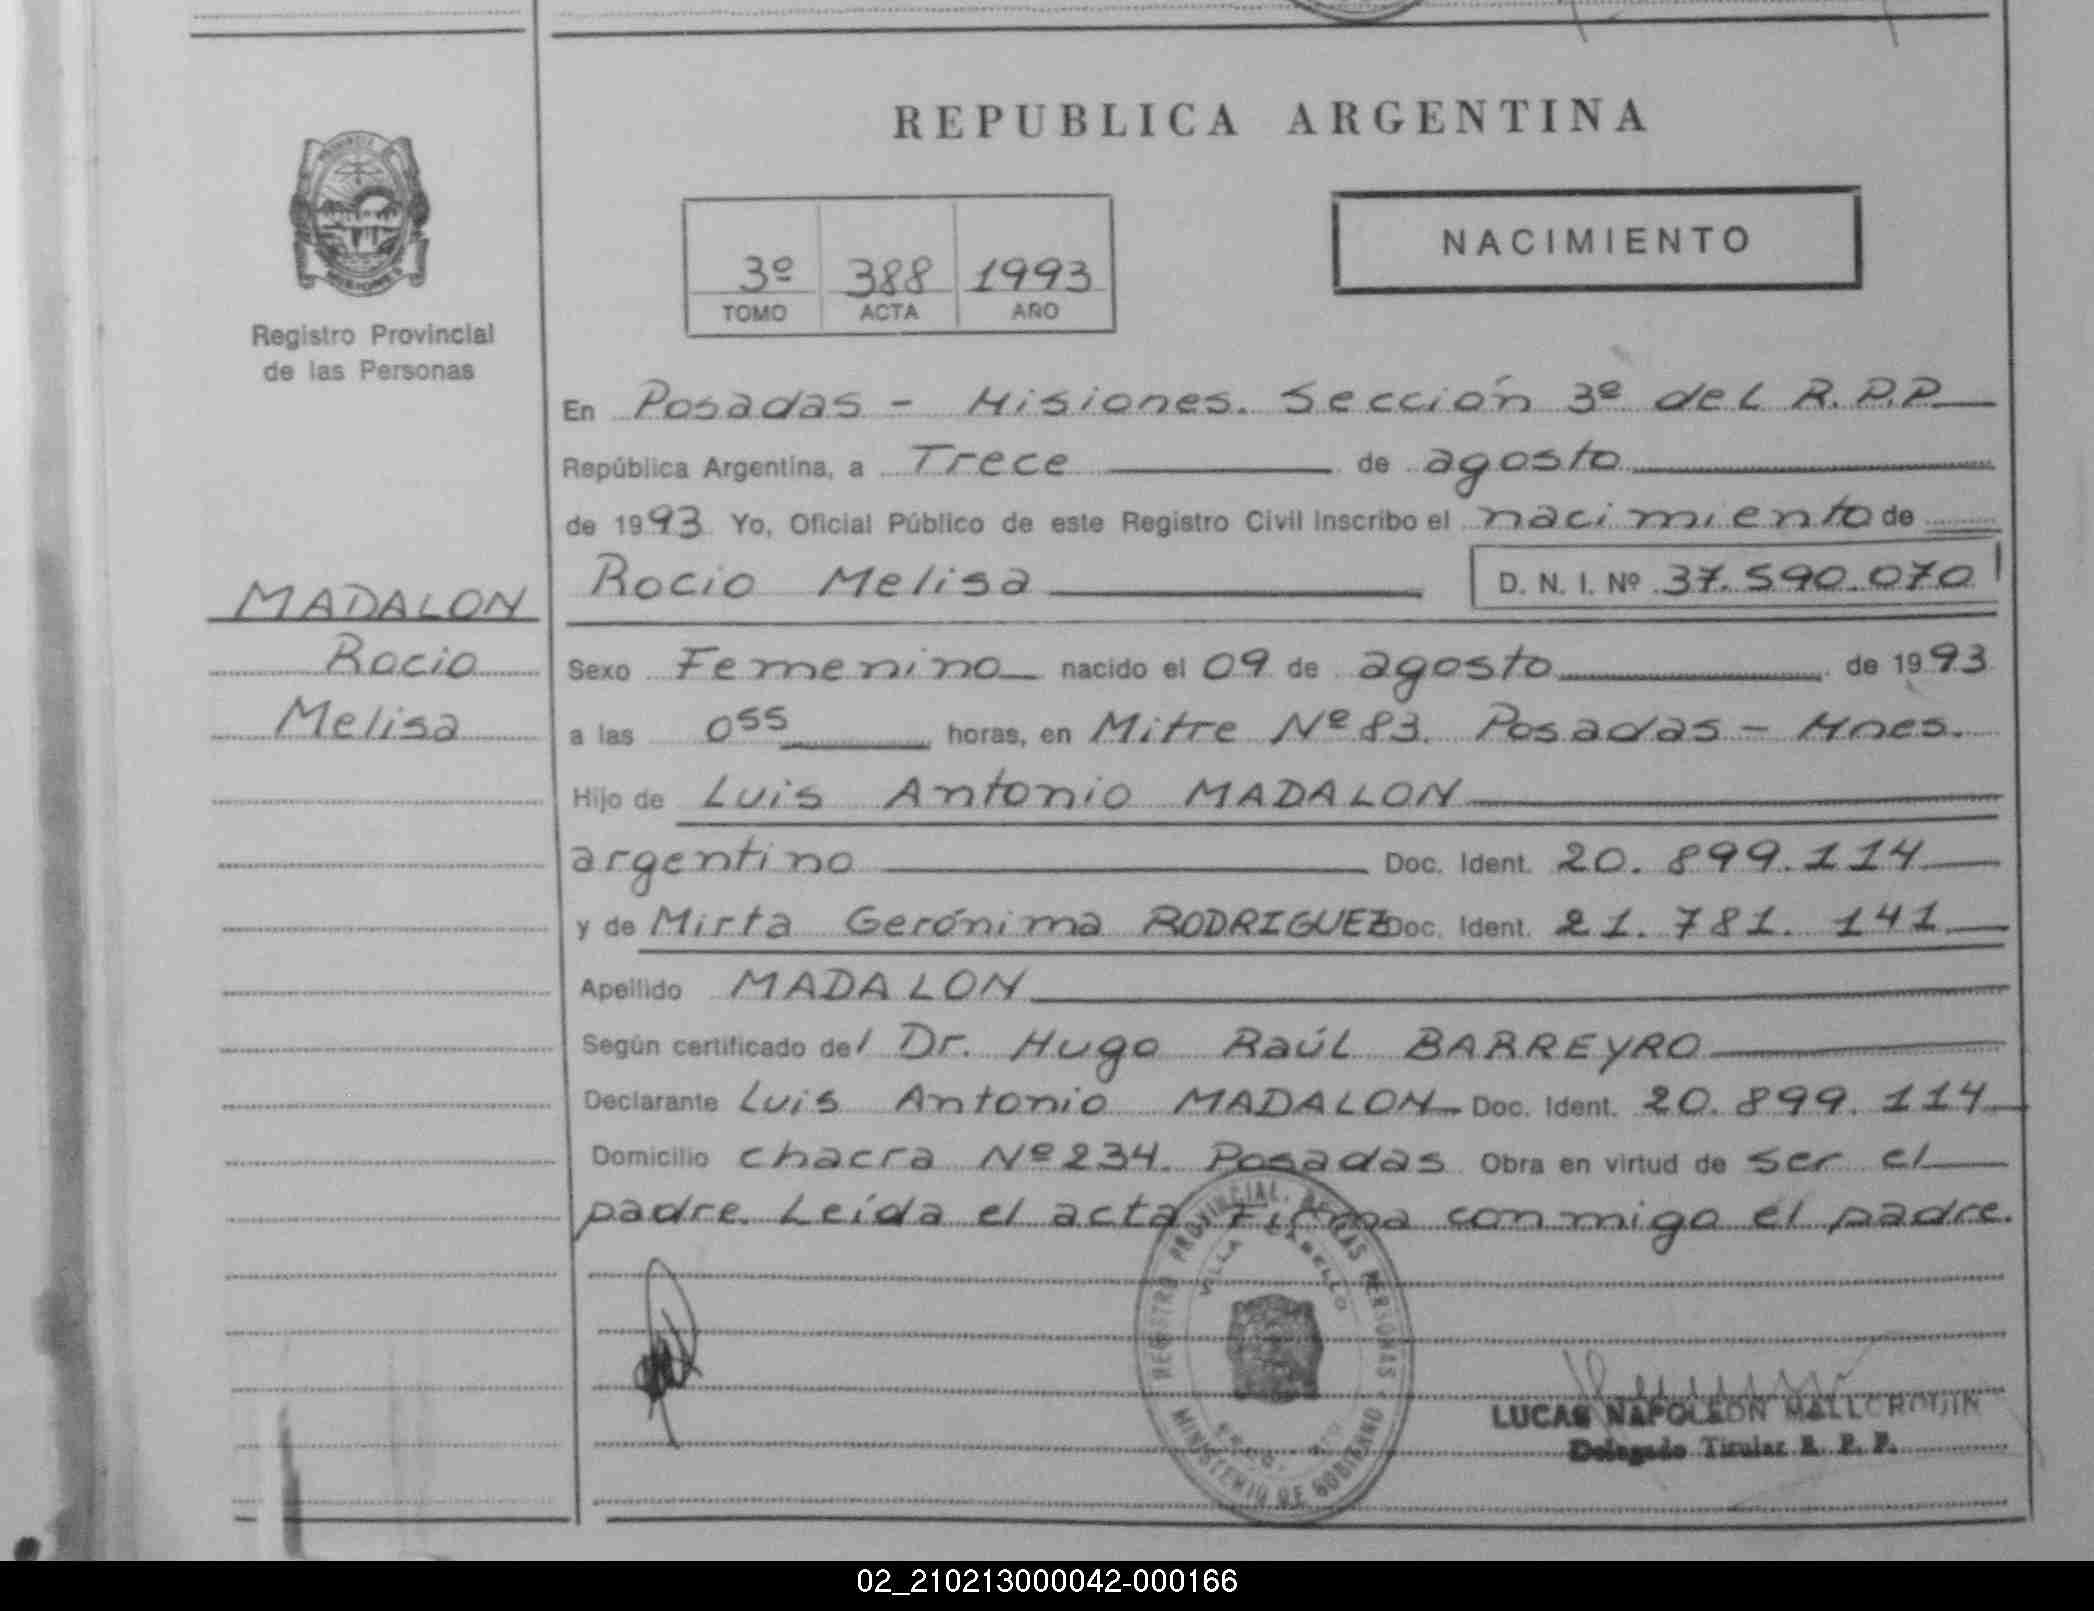 REPUBLICA ARGENTINA
NACIMIENTO
3º 388 1993
TOMO ACTA AÑO
Registro Provincial
de las Personas
MADALON
Rocio
Melisa
En Posadas - Misiones. Sección 3º del R.P.P
República Argentina, a Trece de agosto
de 1993 Yo, Oficial Público de este Registro Civil inscribo el nacimiento de
Rocio Melisa D. N. I. Nº 37.590.070
Sexo Femenino nacido el 09 de agosto de 1993
a las 0 55 horas, en Mitre Nº 83. Posadas - Mnes.
Hijo de Luis Antonio MADALON
argentino Doc. Ident. 20.899.114
y de Mirta Gerónima RODRIGUEZ Doc. Ident. 21.781.141
Apellido MADALON
Según certificado del Dr. Hugo Raúl BARREYRO
Declarante Luis Antonio MADALON Doc. Ident. 20.899.114
Domicilio chacra Nº 234. Posadas Obra en virtud de ser el
padre. Leída el acta Firma conmigo el padre.
REGISTRO PROVINCIAL DE LAS PERSONAS
VILLA CABELLO
MINISTERIO DE GOBIERNO
LUCAS NAPOLEON
Delegado Titular R. P. P.
02_210213000042-000166